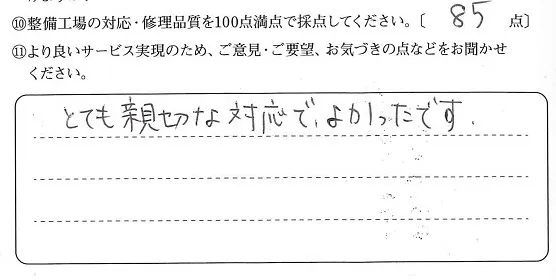 ⑩整備工場の対応・修理品質を100点満点で採点してください。〔 85 点〕
⑪より良いサービス実現のため、ご意見・ご要望、お気づきの点などをお聞かせ
ください。
とても親切な対応で、よかったです.